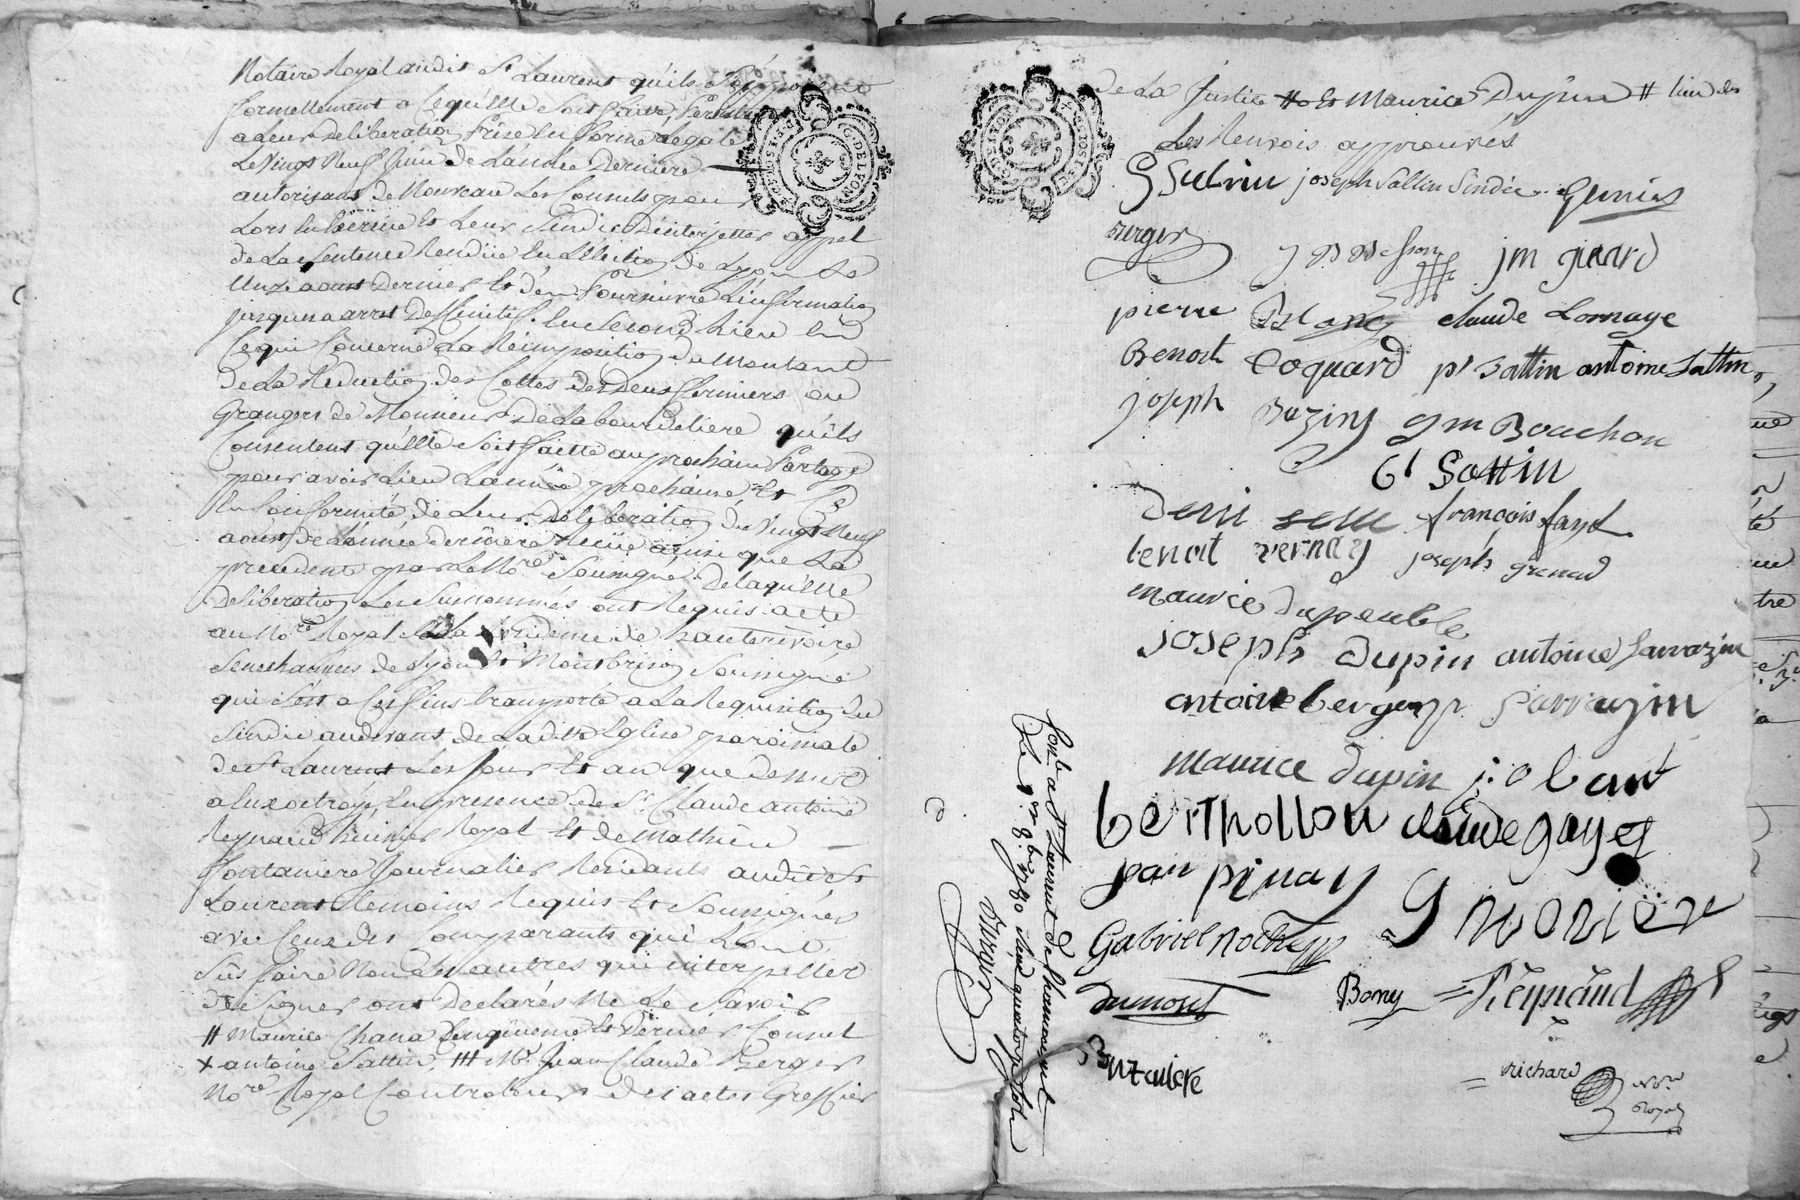 Notaire Royal audit St Laurent qu'ils s'opposent
formellement a ce qu'elle soit faitte,
a leur deliberation prise en forme legale
Le vingt Neuf Juin de L'année derniere
autorisant de Nouveau Les Consuls pour
Lors en Exercice et Leur Sindic d'interjetter appel
de La Sentence Rendüe en L'Election de Lyon Le
Unze aoust dernier et d'en Poursuivre L'infirmation
jusques a arrêt deffinitif. En second Lieu En
Ce qui Concerne La Reimposition du Montant
de La Reduction des Cottes des deux fermiers ou
Grangers de Monsieur De La bourdeliere qu'ils
Consentent qu'elle soit faitte au prochain Partage
pour avoir Lieu L'année prochaine et Ce
En Conformité de Leur deliberation du vingt Neuf
aoust de L'année derniere Reçüe ainsi que La
precedente par Le No.re Soussigné De laquelle
Deliberation Les Surnommés ont Requis acte
au No.re Royal a La Residence de hauterivoire
Senechaussées de Lyon et Montbrison Soussigné
qui s'est a Ces fins transporté a La Requisition du
Sindic audevant de Ladite Eglise paroissiale
de St Laurent Les Jour et an que dessus
a Eux octroyé En presence de Sr. Claude antoine
Reynaud huissier Royal et de Mathieu
fontaniere Journalier Residants audit St
Laurent temoins Requis et Soussignés
avec Ceux des Comparants qui L'ont
Sus faire Non Les autres qui interpellés
de signer ont declarés Ne Le Savoir
# Maurice Chana Cinquieme et Dernier Consul
x antoine Sattin, ## Mr. Jean Claude Berger
No.re Royal Controlleur des actes Greffier
de La Justice # et Maurice Dupin # L'un des
Les Renvois approuvés
joseph Sattin Sindic
Berger jm girard
pierre Blanc claude Lornage
Benoit Coquard pr Sattin antoine Sattin
joseph Bazin jm Bouchon
Cl Sattin
Deni françois fayol
benoit vernay joseph grenad
maurice dupeuble
joseph dupin antoine Sarrazin
antoine berger Sarrazin
maurice dupin
berthollon claude gayet
jean pinay
Gabriel
dumont Bony = Reynaud
fontaniere
= richard nore Royal
Cont. a St Laurent de Chamousset
Le 9.bre 1780 Reçu quatorze sols